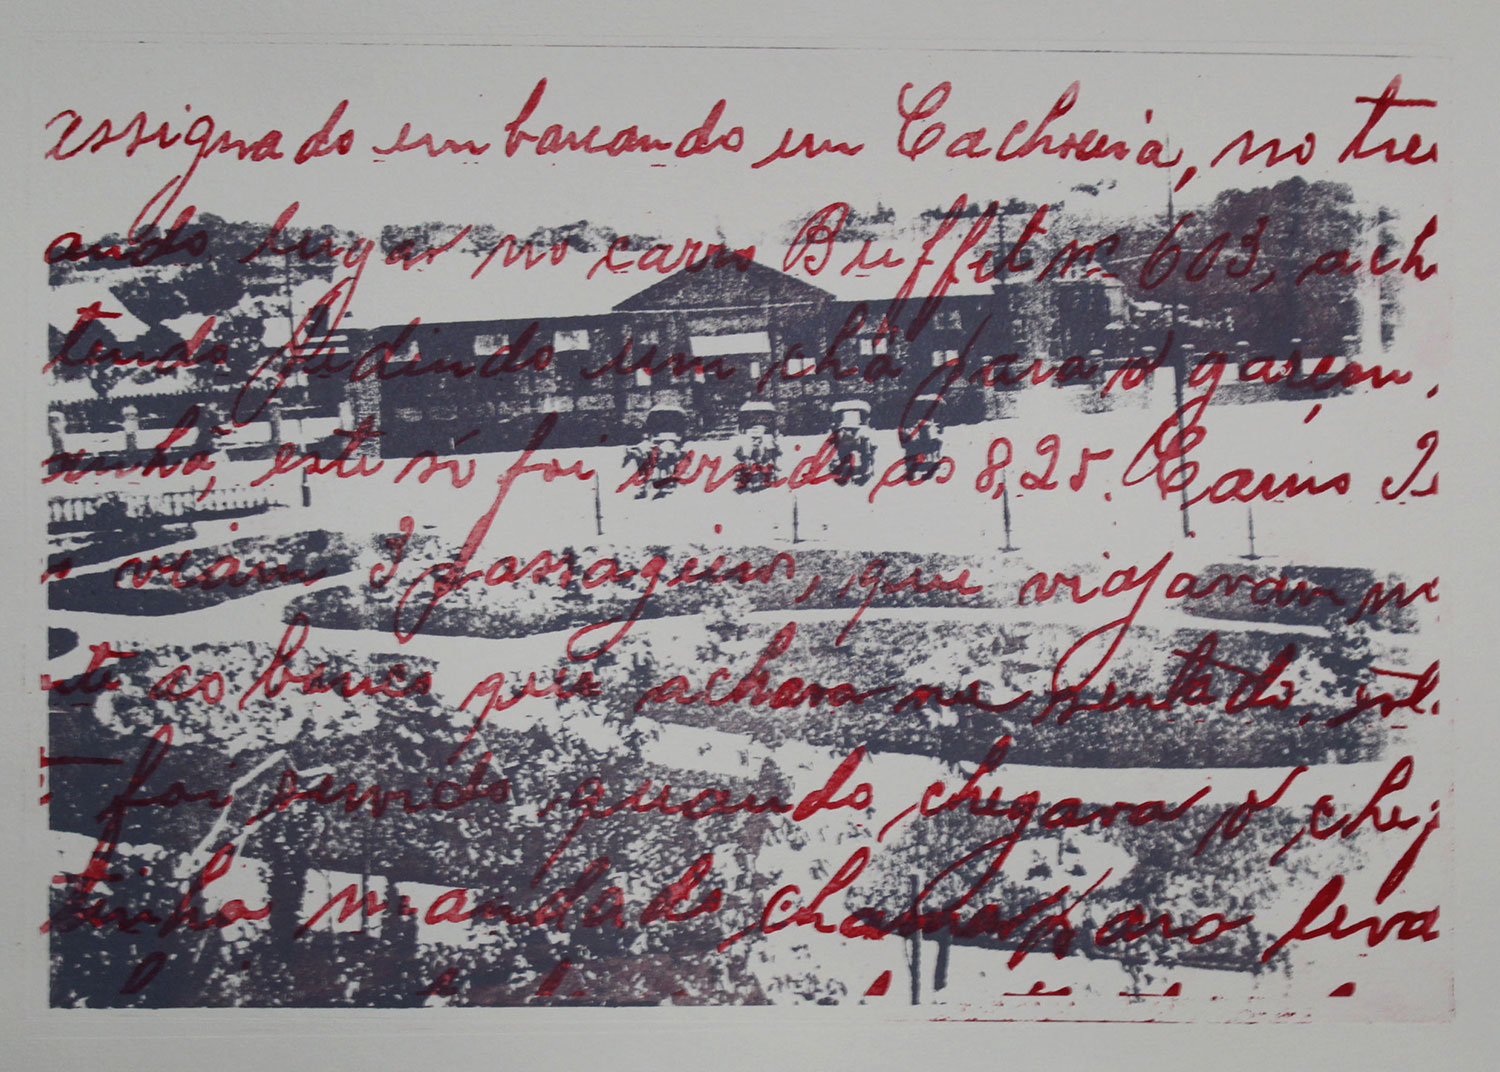 assignado embarcando em Cachoeira, no tre
ando lugar no carro Buffet nº 603, ach
tendo pedindo um chá para o garçon,
anhã, este só foi servido as 8,25. Carro
viam 3 passageiros, que viajavam
ao banco que achava me sentado,
foi servido quando chegava o che
tinha mandado chamar para leva